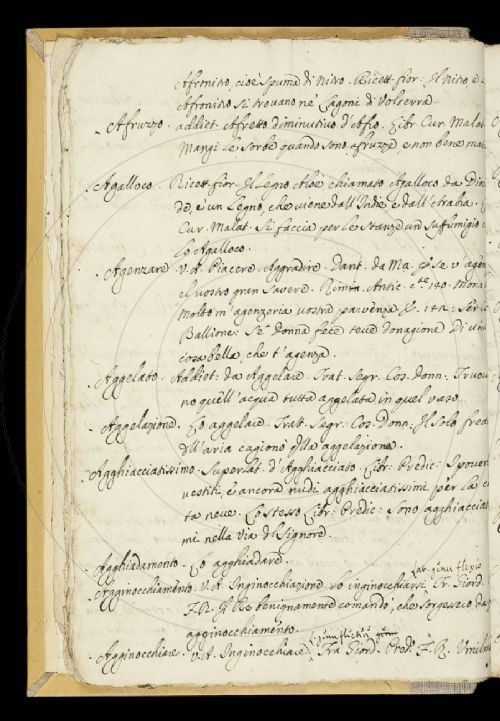 Afronitro, cioè Spuma di Nitro. Ricett. fior: Il Nitro, e
Afronitro si trovano ne Lagoni di Volterra.
Afruzzo. addiet. Afretto diminutivo d'Afro. Libr. Cur. Malat
Mangi le sorbe quando sono afruzze e non bene mat
Agalloco. Ricett. fior. Il Legno Aloè chiamato Agalloco da Dio
de, è un Legno, che viene dall'Indie e dall'Arabia.
Cur. Malat. Si faccia per le Stanze un suffumigio
Lo Agalloco.
Agenzare. V.A. Piacere, Aggradire. Dant. da Ma. se v'agen
el vostro gran Savere. Rim. Antic. 140. Mona
Molto m'agenzeria vostra parvenza 142. Ser
Ballione: Se donna fece teve donagione Di
cosa bella, che t'agenza.
Aggelato. Addiet: da Aggelare. Trat. Segr. Cos. donn. Truova
no quell'acqua tutta aggelata in quel vaso.
Aggelazione. Lo aggelare. Tratt. Segr. Cos. Donn. Il solo fred
dell'aria cagionò della aggelazione.
Agghiacciatissimo. Superlat. d'Agghiacciato. Libr. Predic: I poveri
vestiti, e ancora nudi agghiacciatissimi per la
ta neve. Lo stesso Libr: Predic: Sono agghiacciatissi
mi nella via di Signore.
Agghiadamento. Lo agghiadare.
Lat. genu flexio
Agginocchiamento. V.A. Inginocchiazione. lo inginocchiarsi. Fr. Giord.
P.R. Il Re benignamente comandò, che sorgesseco da
agginocchiamento.
Agginocchiare. V.A. Inginocchiare. Fra Giord. Pred. P.R. Umilm